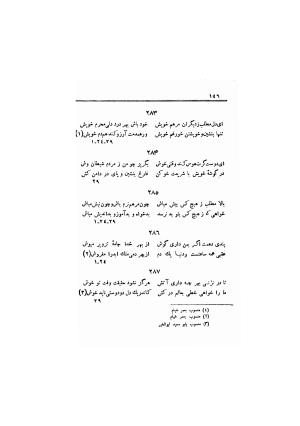 ۱۴۶
۲۸۳
ای دل مطلب ز دیگران مرهم خویش خود باش بهر درد دلی محرم خویش
تنها بنشین و خویشتن خور غم خویش ور همدمت آرزو کند همدم خویش (۱)
۱،۲۴،۲۹
۲۸۴
ای دوست گرت هوس کند وقتی خوش بگریز چو من از مردم شیطان وش
در گوشهٔ خویش با شریعت خو کن فارغ بنشین و پای در دامن کش
۲۹
۲۸۵
بالا مطلب ز هیچ کس بیش مباش چون مرهم نرم باش و چون نیش مباش
خواهی که ز هیچ کس بتو بد نرسد بدخواه و بدآموز و بداندیش مباش
۱،۲۴،۲۹
۲۸۶
پندی دهمت اگر بمن داری گوش از بهر خدا جامهٔ تزویر مپوش
عقبی همه ساعتست و دنیا یک دم از بهر دمی ملک ابد را مفروش (۲)
۱،۲۴
۲۸۷
تا در نزنی بهر چه داری آتش هرگز نشود حقیقت وقت تو خوش
ما را خواهی خطی بعالم در کش کاندر یک دل دو دوستی ناید خوش (۳)
۲۹
(۱) منسوب بعمر خیام
(۲) منسوب بعمر خیام
(۳) منسوب بابو سعید ابوالخیر